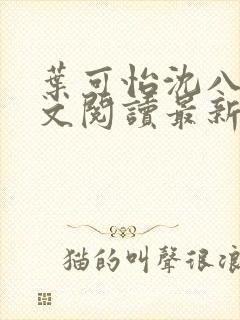 葉可怡沈八
文閱讀最新
猫的叫聲很浪